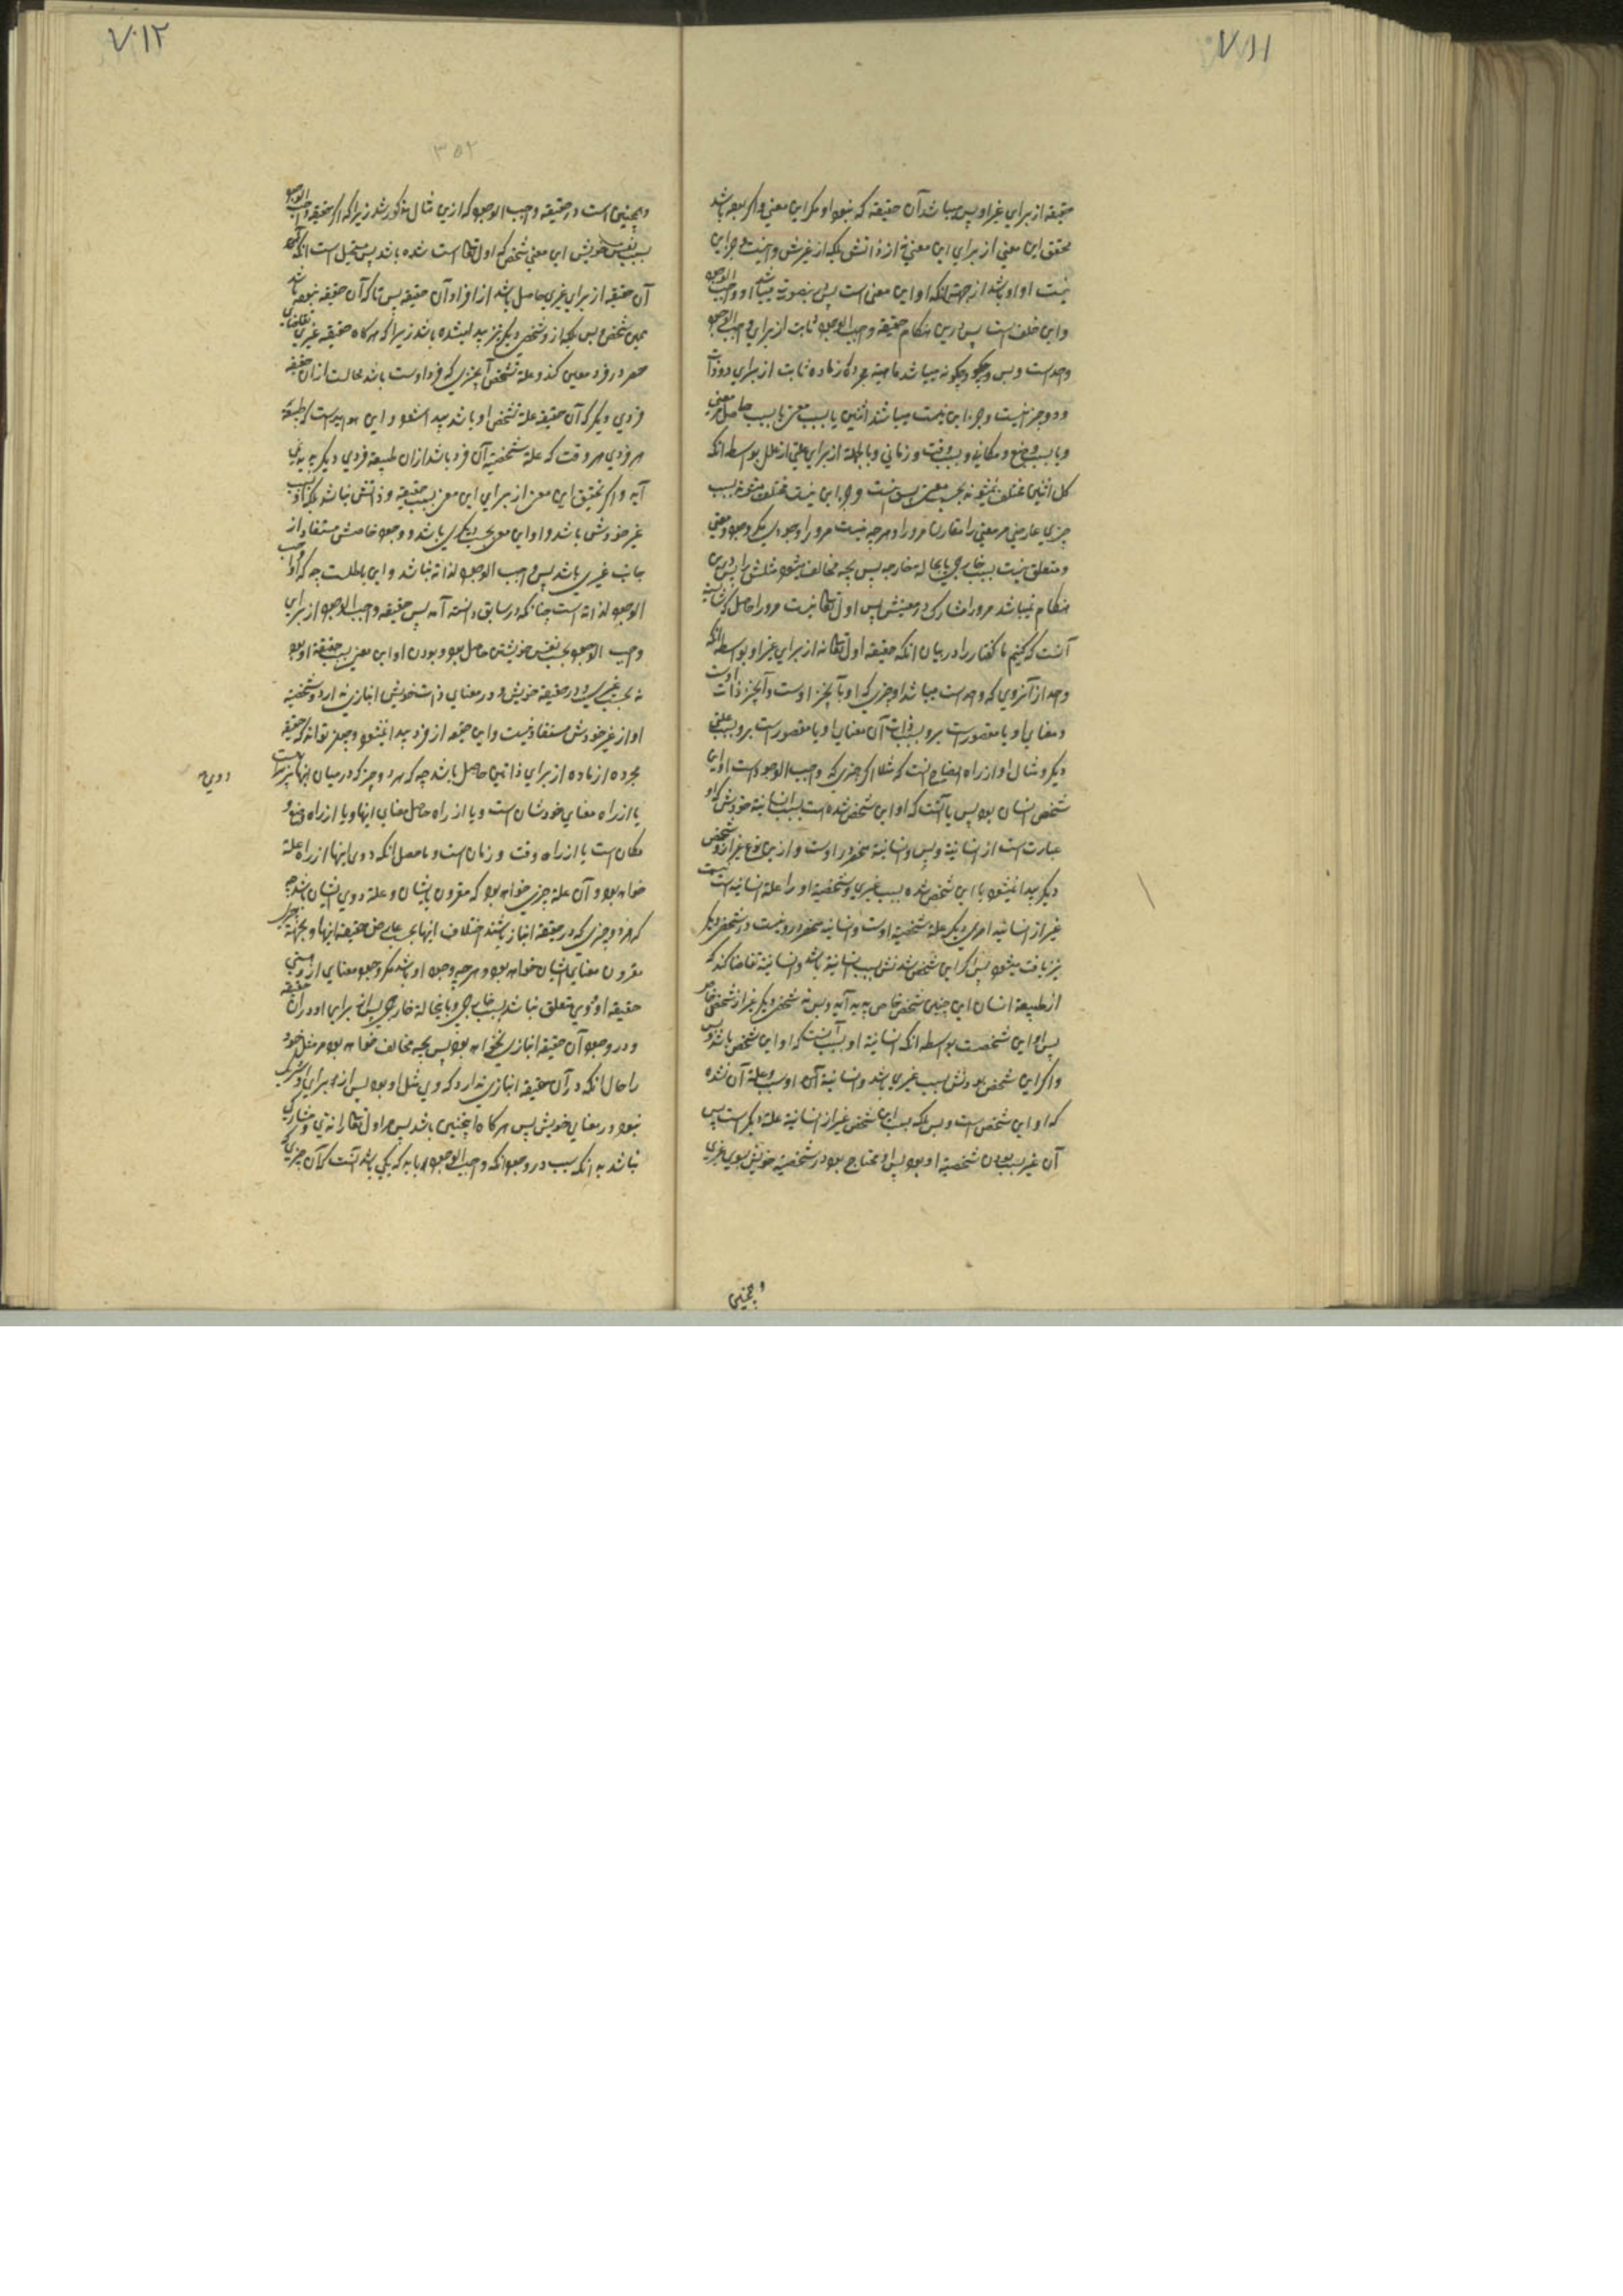 ۷۱۱
حقیقه از برای غیر او پس میباشد آن حقیقه که نبود او مکر این معنی و اکر بوده باشد
تحقق این معنی از برای این معنی نه از ذاتش بلکه از غیرش و اینست و جز این
نیست او او باشد از جهت آنکه او این معنی است پس بی نصورته میباشد او واجب الوجود
و این خلف است پس درین هنکام حقیقه واجب الوجود ثابت از برای واجب الوجود
واحد است و بس و چکونه میباشد ماهیة مجرده از ماده ثابت از برای دو ذات
و دو چیز نیست و جز این نیست میباشند اثنین یا بسبب معنی یا بسبب حامل معنی
و یا بسبب وضع و مکان و بسبب وقت و زمانی و بالجمله از برای علتی از علل بواسطه آنکه
کل اثنین مختلف نمیشوند بحسب معنی پس نیست و جز این نیست مختلف میشوند بسبب
چیزی عارضی مر معنی را مقارنا مرورا و هر چه نیست مرورا وجودی مکر وجود معنی
و متعلق نیست بسبب خارجی یا بحاله خارجه پس بچه مخالف میشود مثلش را پس درین
هنکام نمیباشد مرورا مشارک در معنیش پس اول تعالی نیست مرورا حاصل
آنست که کنیم ما کفتار را در بیان آنکه حقیقه اول تعالی نه از برای غیر او بواسطه آنکه
واحد از آنروی که واحد است میباشد او چیزی که او بآنچیز اوست و آنچیز ذات اوست
و معنای او یا مقصور است برو بسبب ذات آن معنای او یا مقصور است برو بسبب علتی
دیکر و مثال او از راه ایضاح آنست که مثلا اکر چیزی که واجب الوجود است او این
شخص انسان بود پس یا آنست که او این شخص شده است بسبب انسانیة خودش که او
عبارت است از انسانیة و بس و انسانیة منحصر در اوست و ازین نوع غیر از او شخص
دیکر پیدا نمیشود یا این شخص شده بسبب غیری و شخصیة او را علة انسانیة است نیست
غیر از انسانیه امری دیکر علة شخصیة اوست و انسانیه منحصر درو نیست در شخص دیکر
نیز یافت میشود پس اکر این شخص شدنش بسبب انسانیة باشد و انسانیة تقاضا کند که
از طبیعة انسان این چنین شخص خاص پدید آید و بس نه شخص دیکر غیر از شخص خاص
پس او این شخصست بواسطه آنکه انسانیة او بسبب آنست که او این شخص باشد و بس
و اکر این شخص بودنش بسبب غیری باشد و انسانیة آن او سبب و علة آن نشده
که او این شخص است و بس بلکه سبب این شخص غیر از انسانیة علة دیکر است پس
آن غیر سبب بودن شخصیة او بود پس او محتاج بود در شخصیة خویش بسوی غیری
و همچنین
۷۱۲
۳۵۲
و همچنین است در حقیقه واجب الوجود که ازین مثال مذکور شد زیرا که اکر حقیقه واجب الوجود
بسبب نفس خویش این معنی شخص که اول تعالی است شده باشد پس مستحیل است آنکه
آن حقیقه از برای غیری حاصل باشد از افراد آن حقیقه پس تا که آن حقیقه نبوده باشد
همین شخص و بس بلکه از و شخص دیکر نیز پدید شده باشد زیرا که هر کاه حقیقه غیری تقاضای
حصر در فرد معین کند و علة تشخص آنچیزی که فرد اوست باشد محالست از آن حقیقه
فردی دیکر که آن حقیقه علة تشخص او باشد پیدا شود و این هویداست که طبیعة
هر فردی هر وقت که علة شخصیة آن فرد باشد از آن طبیعة فردی دیکر پدید نمی
آید و اکر تحقق این معنی از برای این معنی بسبب حقیقه و ذاتش نباشد بلکه از سبب
غیر خودش باشد و او این معنی بحسب دیکری باشد و وجود خاصش مستفاد از
جانب غیری باشد پس واجب الوجود لذاته نباشد و این باطلست چه که او واجب
الوجود لذاته است چنانکه در سابق دانسته آمد پس حقیقه واجب الوجود از برای
واجب الوجود بحسب نفس خویشتن حاصل بود و بودن او این معنی بسبب حقیقة او بود
نه بحسب غیری و در حقیقه خویش و در معنای ذات خویش انبازی ندارد و شخصیة
او از غیر خودش مستفاد نیست و این حقیقه از فرد پیدا نمیشود و چطور تواند که حقیقه
مجرده از ماده از برای ذاتین حاصل باشد چه که هر دو چیز که در میان اینها
دویی
یا از راه معنای خودشان است و یا از راه حامل معنای اینها و یا از راه وضع و
مکان است یا از راه وقت و زمان است و ماحصل آنکه دویی اینها از راه علة
خواهد بود و آن علة چیزی خواهد بود که مقرون بایشان و علة دویی ایشان باشد چه
که هر دو چیزی که در حقیقه انباز باشند اختلاف اینها بحسب عارض حقیقه اینها
مقرون معنای ایشان خواهد بود و هر چه وجود او باشد مکر وجود معنای ازو
حقیقه او و وی متعلق نباشد بسبب خارجی و یا بحالة خارجی پس از برای او در آن حقیقه
و در وجود آن حقیقه انبازی نخواهد بود پس بچه مخالف خواهد بود مر مثل خود
را حال آنکه در آن حقیقه انبازی ندارد که وی مثل او بود پس از برای او شریک
نبود در معنای خویش پس هر کاه اینچنین باشد پس مر اول تعالی را ندی و مشارکی
نباشد بدانکه سبب در وجود آنکه واجب الوجود باید که یکی باشد آنست که آن چیزی که